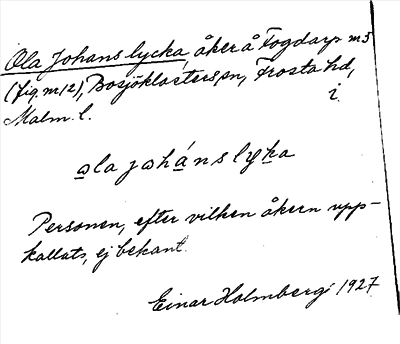 Ola Johans lycka, åker å Fogdarp m5
(fig. m12), Bosjöklosters sn, Frosta hd,
Malm. l. i.
ola johánslyka
Personen, efter vilken åkern upp-
kallats, ej bekant.
Einar Holmberg 1927